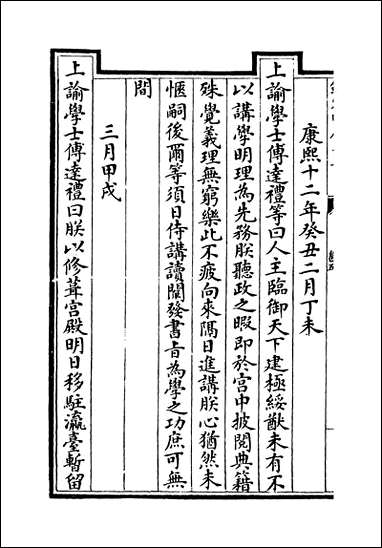 康熙十二年癸丑二月丁未
上諭學士傅達禮等曰人主臨御天下建極綏猷未有不
以講學明理為先務朕聽政之暇即於宮中披閱典籍
殊覺義理無窮樂此不疲向來隔日進講朕心猶然未
愜嗣後爾等須日侍講讀闡發書旨為學之功庶可無
間
三月甲戌
上諭學士傅達禮曰朕以修葺宮殿明日移駐瀛臺暫留